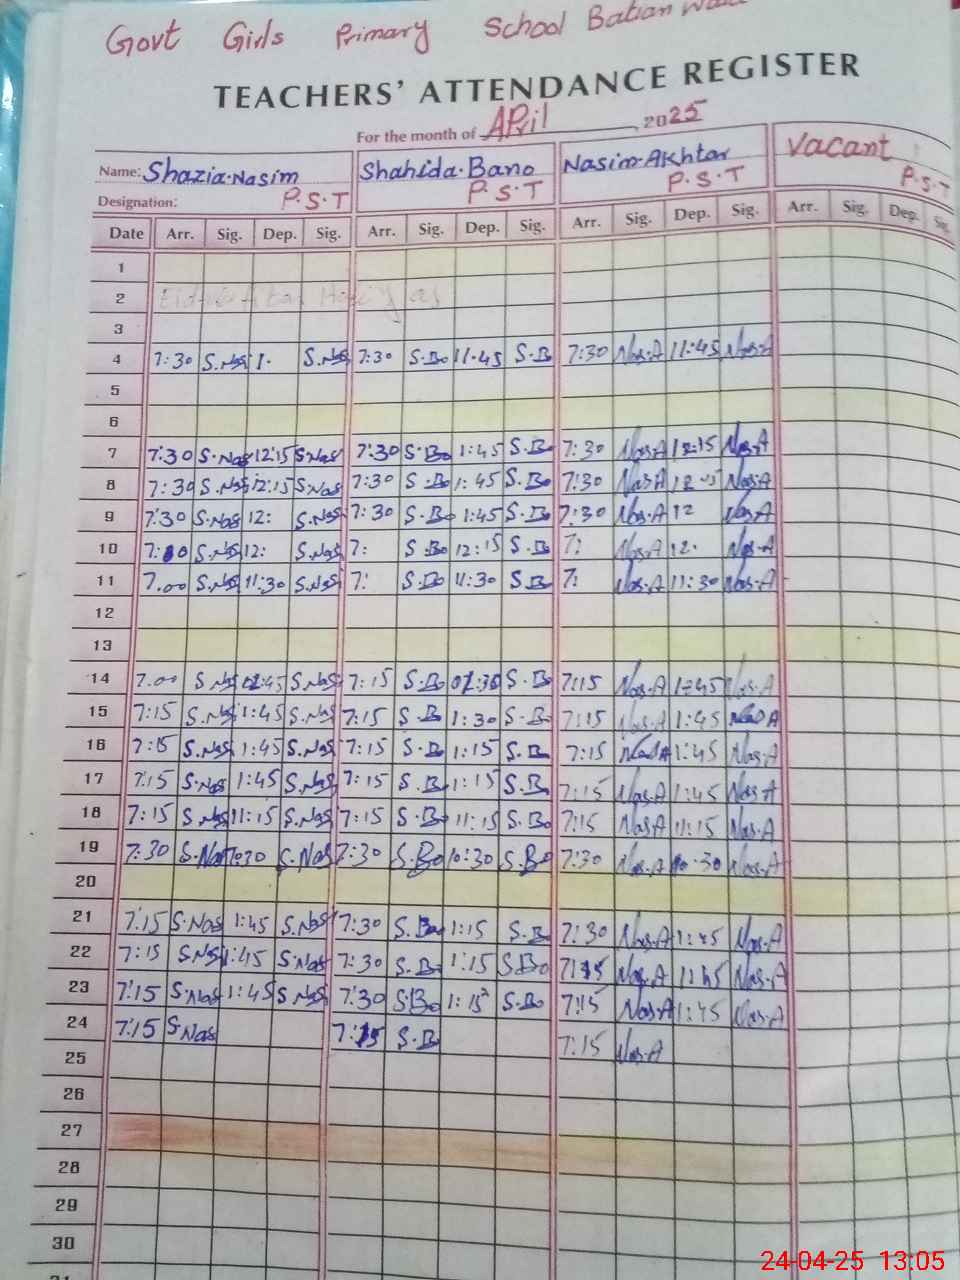 Govt Girls Primary School Batian
TEACHERS' ATTENDANCE REGISTER
For the month of April, 2025
Name: Shazia.Nasim Shahida.Bano Nasim.Akhtar Vacant
Designation: P.S.T P.S.T P.S.T P.S.T
Date Arr. Sig. Dep. Sig. Arr. Sig. Dep. Sig. Arr. Sig. Dep. Sig. Arr. Sig. Dep. Sig.
1
2
3
4 7:30 S.Nas 1. S.Nas 7:30 S.Bo 11.45 S.B 7:30 Nas.A 11:45 Nas.A
5
6
7 7:30 S.Nas 12:15 S.Nas 7:30 S.Bo 1:45 S.Bo 7:30 Nas.A 12:15 Nas.A
8 7:30 S.Nas 12:15 S.Nas 7:30 S.Bo 1:45 S.Bo 7:30 Nas A Nas.A
9 7:30 S.Nas 12: S.Nas 7:30 S.Bo 1:45 S.Bo 7:30 Nas.A 12 Nas A
10 S.Nas 12: S.Nas 7: S.Bo 12:15 S.B 7: Nas.A 12. Nas.A
11 7.00 S.Nas 11:30 S.Nas 7: S.Bo 11:30 S.B 7: Nas.A 11:30 Nas.A
12
13
14 7.00 S.Nas S.Nas 7:15 S.Bo S.B 7:15 Nas.A Nas.A
15 7:15 S.Nas 1:45 S.Nas 7:15 S.B 1:30 S.B 7:15 Nas.A 1:45
16 7:15 S.Nas 1:45 S.Nas 7:15 S.B 1:15 S.B 7:15 1:45 Nas.A
17 7:15 S.Nas 1:45 S.Nas 7:15 S.B 1:15 S.B 7:15 Nas.A 1:45 Nas A
18 7:15 S.Nas 11:15 S.Nas 7:15 S.Bo 11:15 S.Bo 7:15 Nas A 11:15 Nas.A
19 7:30 S.Nas S.Nas 7:30 S.Bo 10:30 S.Bo 7:30 Nas.A 10.30 Nas.A
20
21 7:15 S.Nas 1:45 S.Nas 7:30 S.Bo 1:15 S.B 7:30 Nas.A 1:45 Nas.A
22 7:15 S.Nas 1:45 S.Nas 7:30 S.Bo 1:15 S.Bo 7:15 Nas.A 1:45 Nas.A
23 7:15 S.Nas 1:45 S.Nas 7:30 S.Bo 1:15 S.Bo 7:15 Nas.A 1:45 Nas.A
24 7:15 S.Nas 7:15 S.B 7:15 Nas.A
25
26
27
28
29
30
24-04-25 13:05